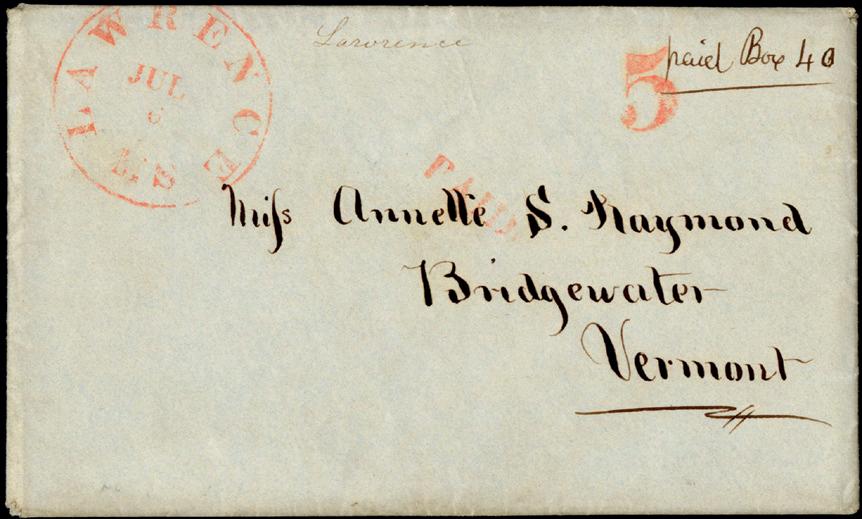 LAWRENCE Ms
JUL
6
Lawrence
5
paid Box 40
PAID
Miss Annette S. Raymond
Bridgewater
Vermont